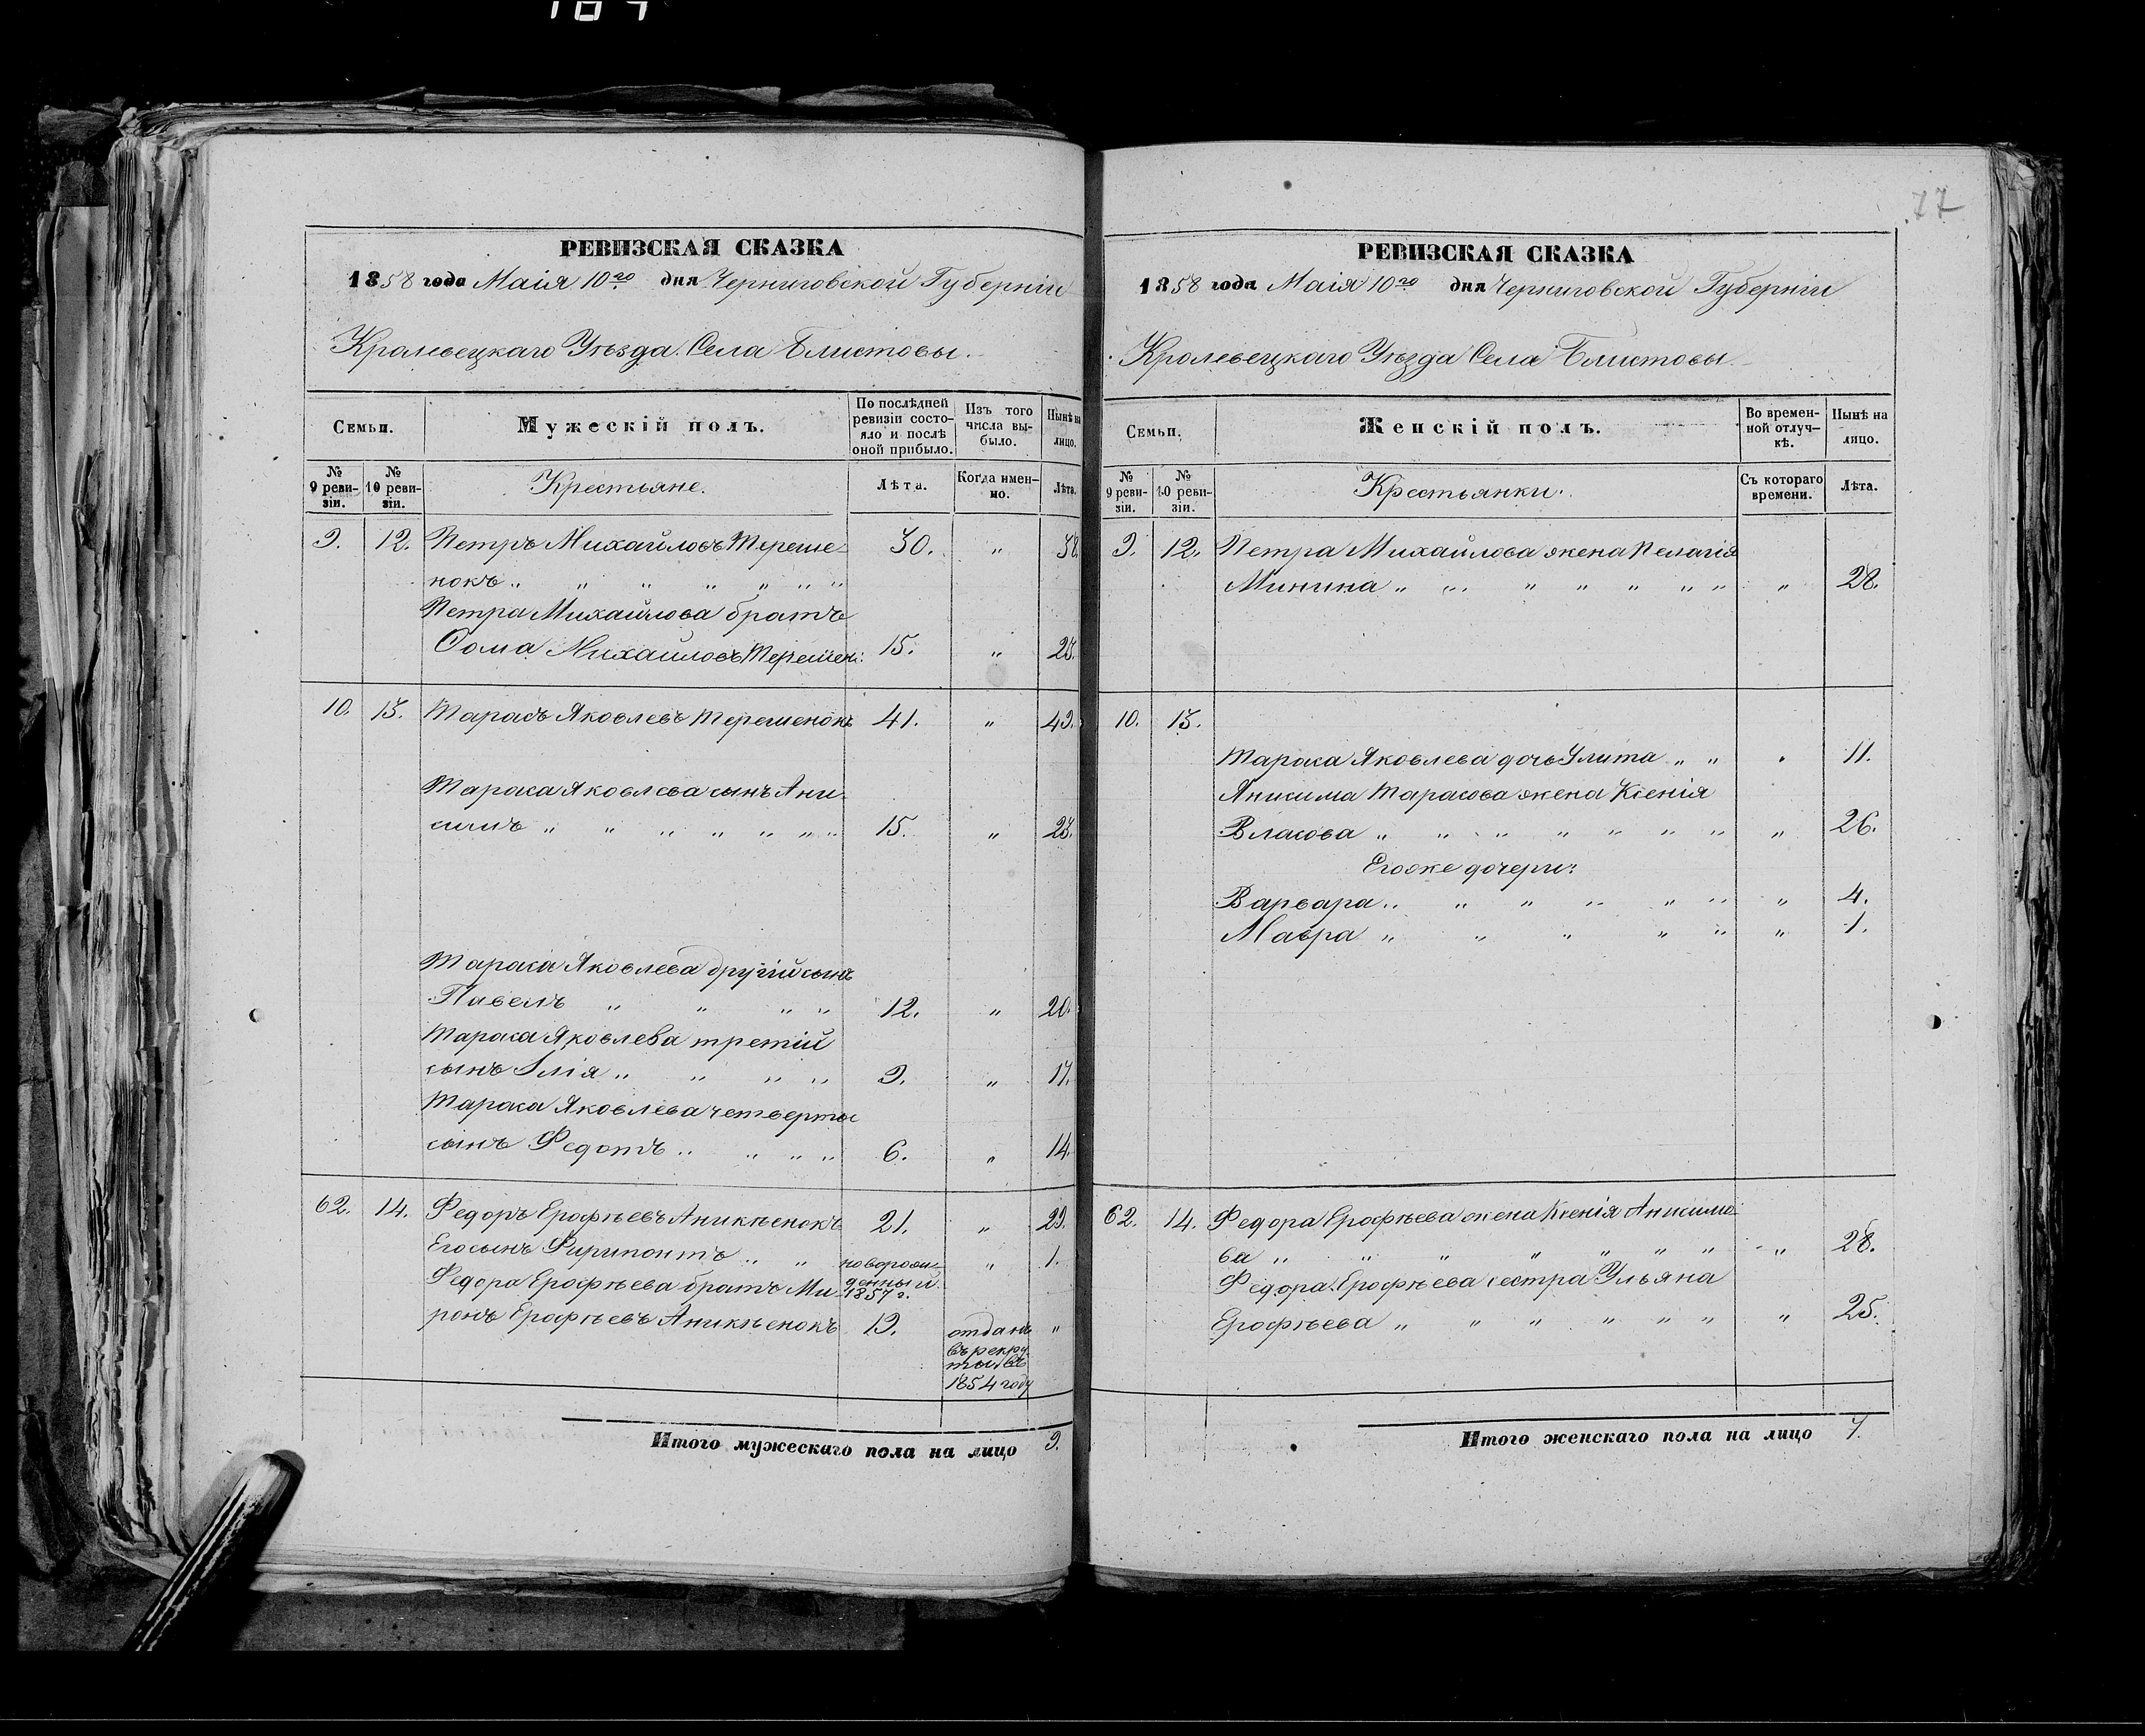 77
РЕВИЗСКАЯ СКАЗКА
1858 года Маія 10го дня Черниговской Губерніи
Кролевецкаго Уѣзда. Села Блистовы.
Семьи.
Мужескій полъ.
По послѣдней ревизіи состояло и послѣ оной прибыло.
Изъ того числа выбыло.
Нынѣ на лицо.
№ 9 ревизіи.
№ 10 ревизіи.
Крестьяне.
Лѣта.
Когда именно.
Лѣта.
9. 12. Петръ Михайловъ Тереше- 30. " 38.
нокъ " " " " " " "
Петра Михайлова братъ
Фома Михайловъ Терешен: 15. " 23.
10. 13. Тарасъ Яковлевъ Терешенокъ 41. " 49.
Тараса Яковлева сынъ Ани-
симъ " " " " " " " 15. " 23.
Тараса Яковлева другій сынъ
Павелъ " " " " 12. " 20.
Тараса Яковлева третій
сынъ Илія " " " " 9. " 17.
Тараса Яковлева четверты
сынъ Федотъ " " " " 6. " 14.
62. 14. Федоръ Ерофѣевъ Аникѣенокъ 21. " 29.
Его сынъ " " новорож- " 1.
Федора Ерофѣева братъ Ми- денный 1857 г.
ронъ Ерофѣевъ Аникѣенокъ 19. отданъ "
въ рекру
ты въ
1854 году
Итого мужескаго пола на лицо 9.
РЕВИЗСКАЯ СКАЗКА
1858 года Маія 10го дня Черниговской Губерніи
Кролевецкаго Уѣзда Села Блистовы
Семьи.
Женскій полъ.
Во временной отлучкѣ.
Нынѣ на лицо.
№ 9 ревизіи.
№ 10 ревизіи.
Крестьянки.
Съ котораго времени.
Лѣта.
9. 12. Петра Михайлова жена Пелагія
Минина " " " " " " " " 28.
10. 13.
Тараса Яковлева дочь Улита " " " 11.
Анисима Тарасова жена Ксенія
Власова " " " " " " " " 26.
Егоже дочери:
Варвара " " " " " " " 4.
Мавра " " " " " " 1.
62. 14. Федора Ерофѣева жена Ксенія Анисимо-
ва " " " " " " " " 28.
Федора Ерофѣева сестра Ульяна
Ерофѣева " " " " " " " 25.
Итого женскаго пола на лицо 7.